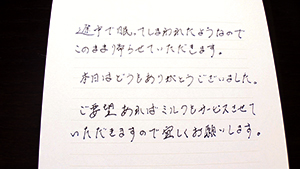 途中で眠ってしまわれたようなので
このまま待らせていただきます。
本日はどうもありがとうございました。
ご要望あればミルクもサービスさせて
いただきますので宜しくお願いします。